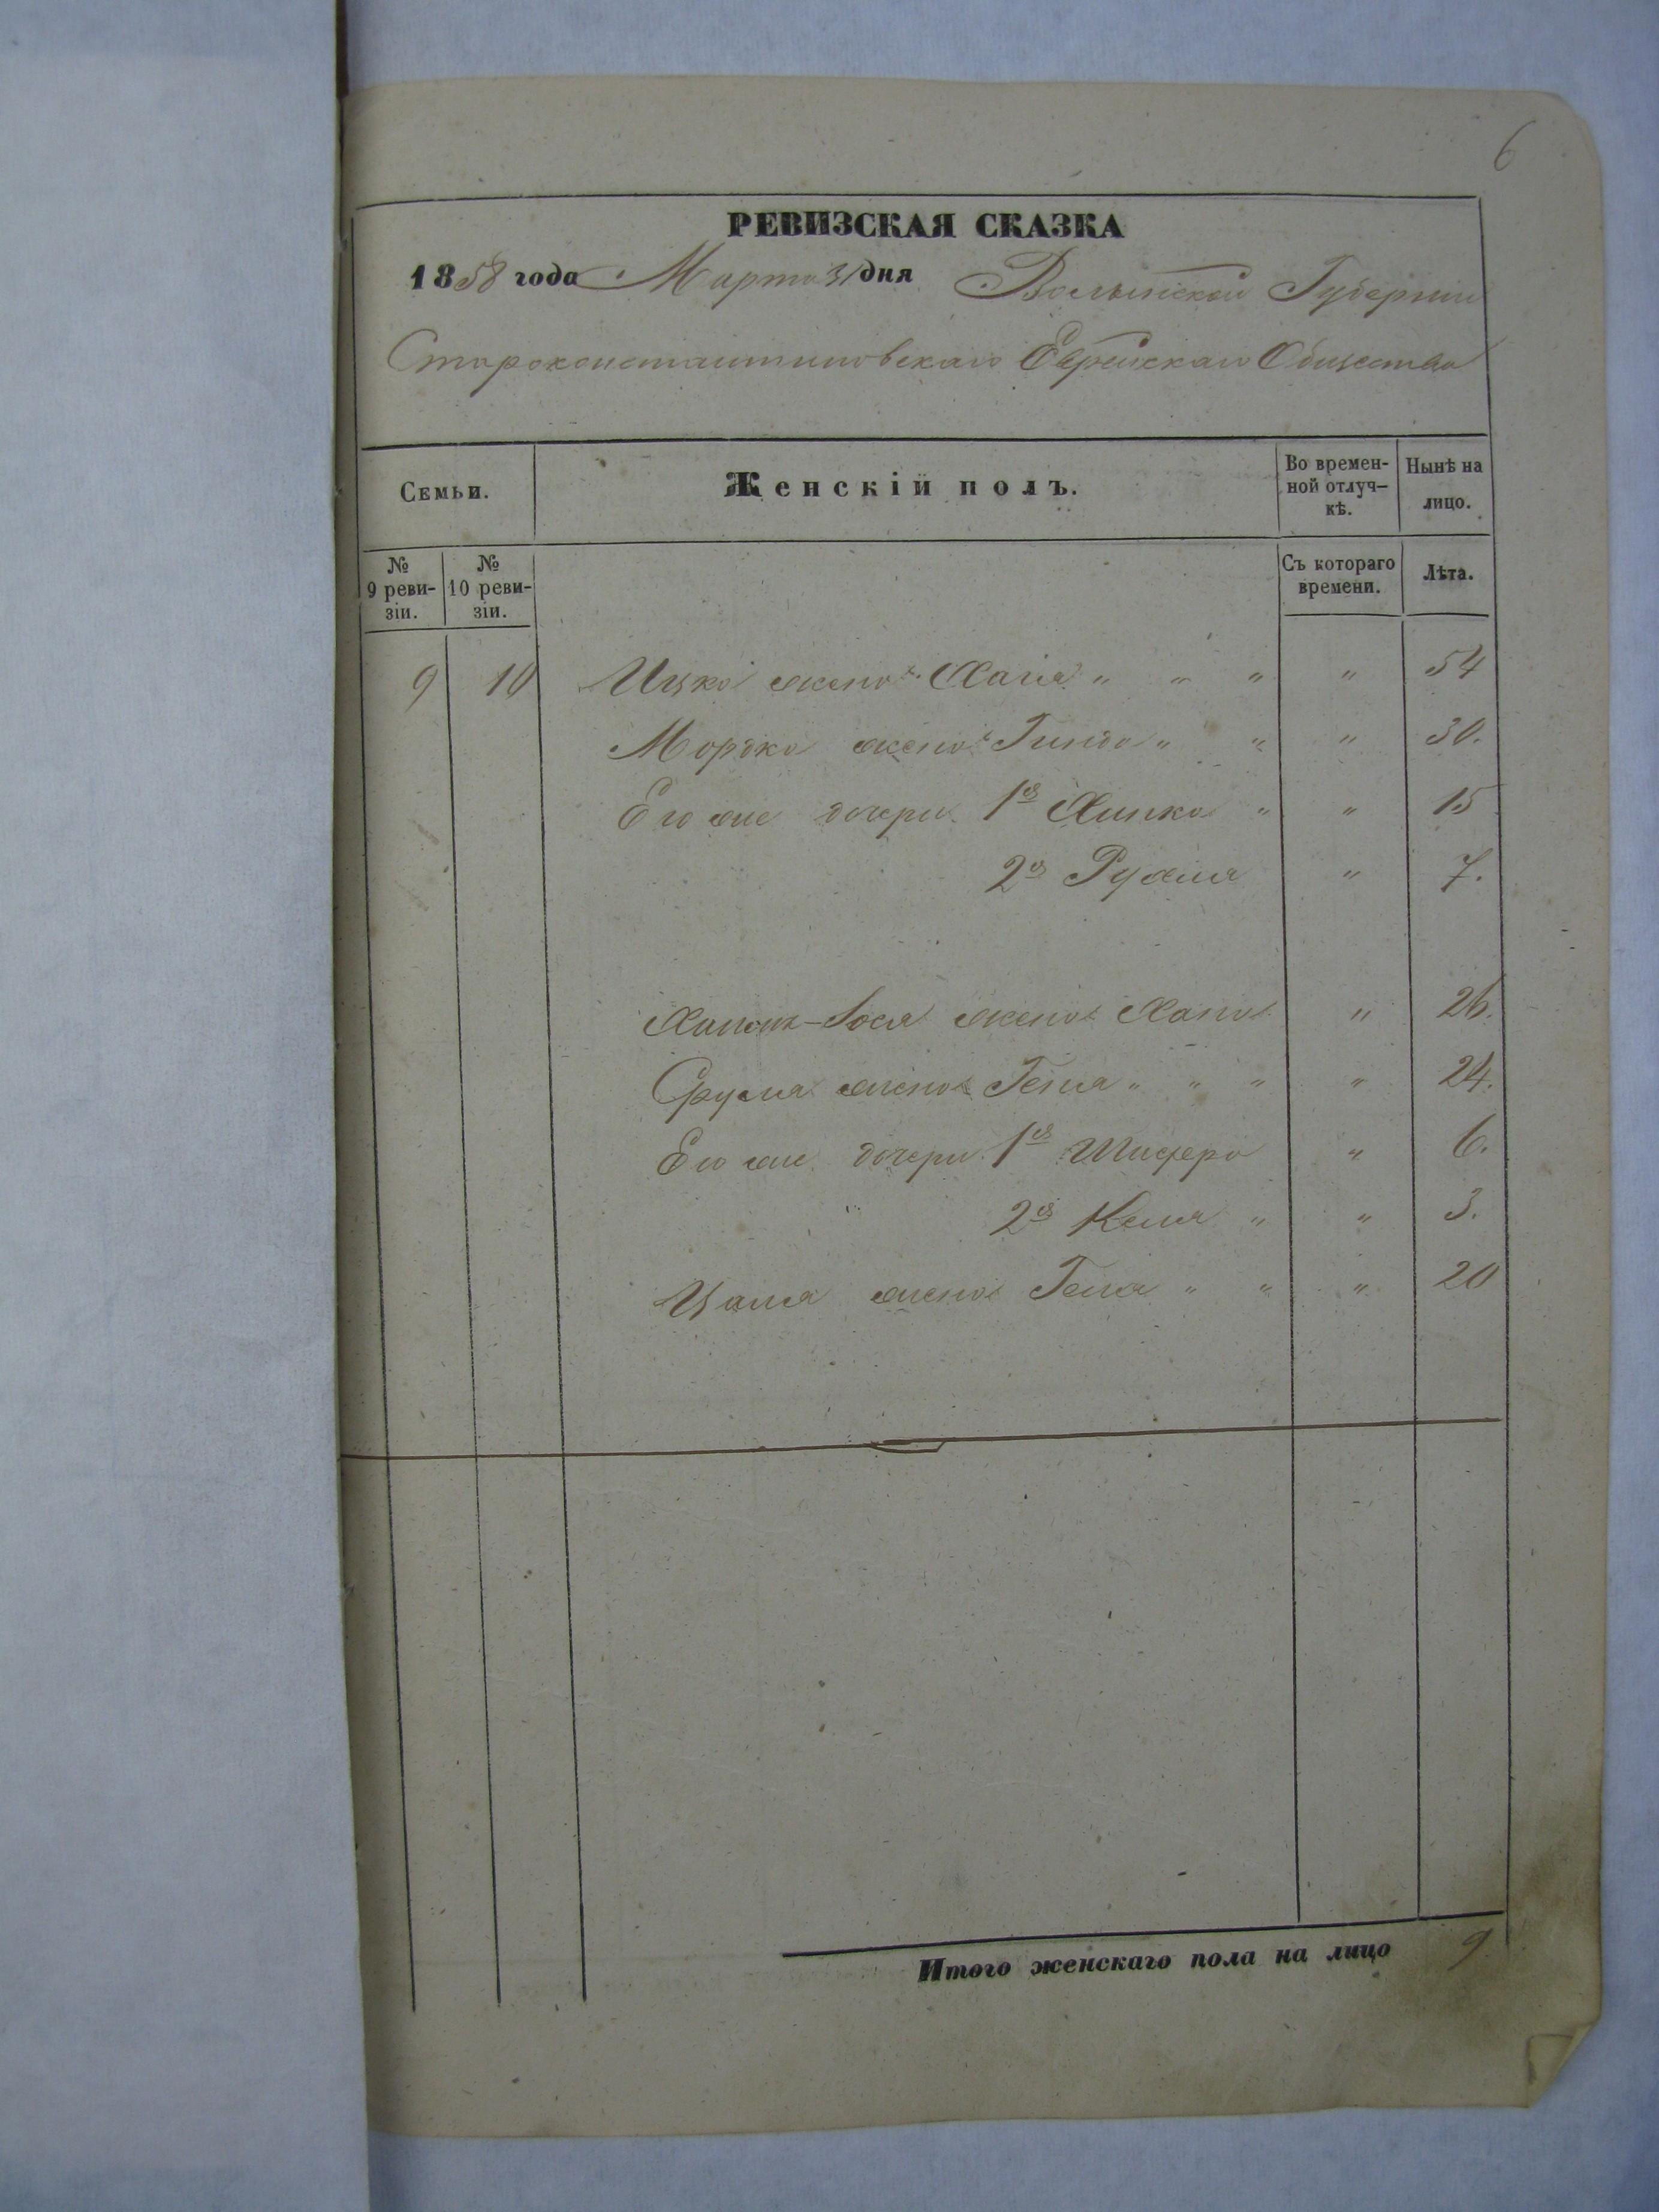 6
РЕВИЗСКАЯ СКАЗКА
1858 года Марта 31 дня Волынской Губернии
Староконстантиновскаго Еврейскаго Общества
Семьи.
Женскій полъ.
Во времен-
ной отлуч-
кѣ.
Нынѣ на
лицо.
№
9 реви-
зіи.
№
10 реви-
зіи.
Съ котораго
времени.
Лѣта.
9 10 Ицка жена Хаія " " " " 54
Мордка жена Гинда " " " 30.
Его же дочери 1я Хинка " " 15
2я Рухля " 7.
жена Хана " 26.
Срула жена Геня " " " " 24.
Его же дочери 1я Шифра " 6.
2я Кейля " " 3.
жена " " " 20
Итого женскаго пола на лицо 9